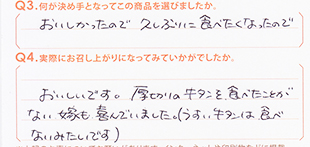 Q3.何が決め手となってこの商品を選びましたか。
おいしかったので 久しぶりに食べたくなったので
Q4.実際にお召し上がりになってみていかがでしたか。
おいしいです。厚切りの牛タンを食べたことが
ない嫁も喜んでいました。(うすい牛タンは食べ
ないみたいです)